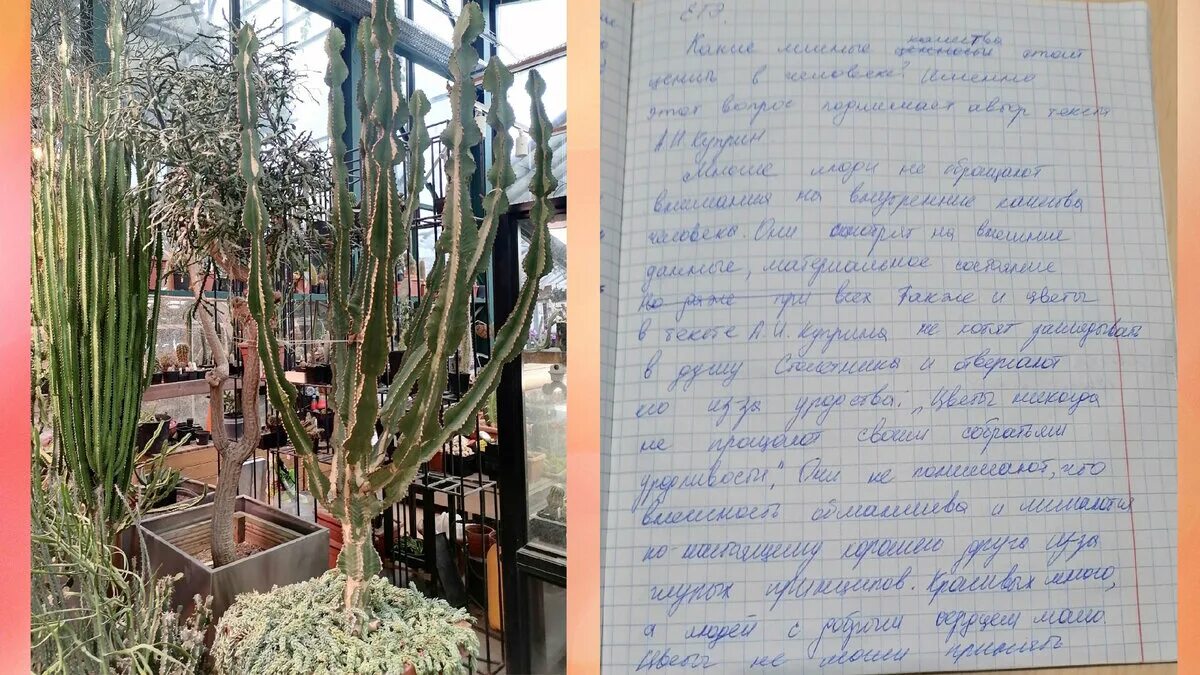 ЕГЭ.
Какие личные качества стоит
ценить в человеке? Именно
этот вопрос поднимает автор текста
А.И.Куприн.
Многие люди не обращают
внимания на внутренние качества
человека. Они смотрят на внешние
данные, материальное состояние
но даже при всех Также и цветы
в тексте А.И.Куприна не хотят заглядывать
в душу Столетника и отвергают
его из за уродства. "Цветы никогда
не прощают своим собратьям
уродливость". Они не понимают, что
внешность обманчива и лишаются
по настоящему хорошего друга из за
глупых принципов. Красивых много,
а людей с добрым сердцем мало.
Цветы не могли принять